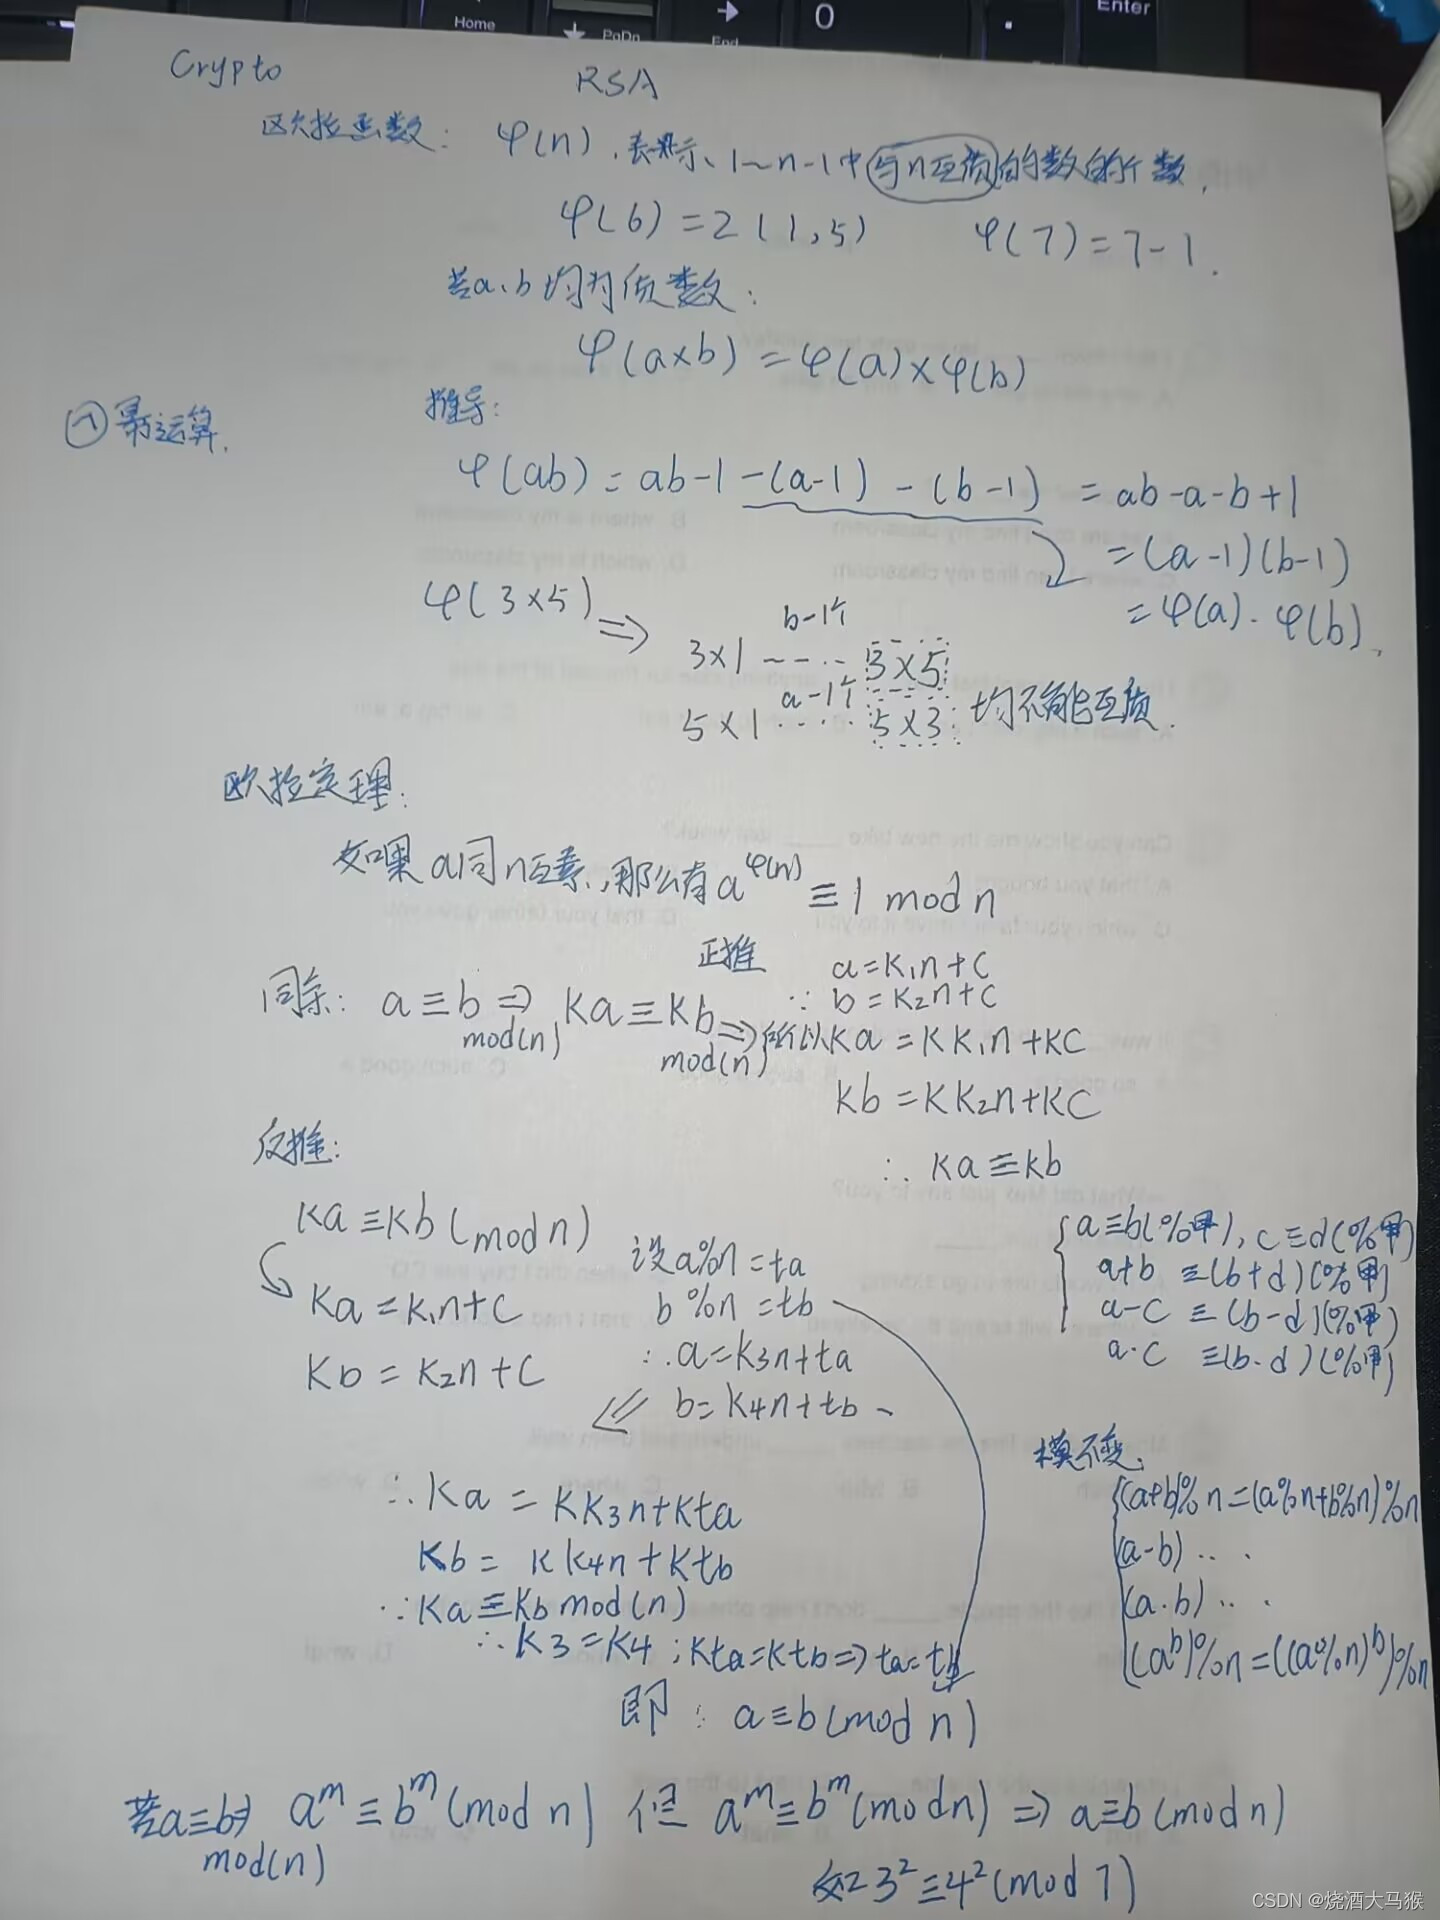 Home
PgDn
End
0
.
Enter
Crypto
RSA
区欠拉函数: φ(n),表示、1~n-1中与n互质的数的个数.
φ(6)=2(1,5) φ(7)=7-1.
若a、b均为质数:
φ(a×b)=φ(a)×φ(b)
① 幂运算.
推导:
φ(ab)=ab-1-(a-1)-(b-1) =ab-a-b+1
=(a-1)(b-1)
=φ(a)·φ(b).
φ(3×5) ⇒
b-1个
3×1 --·· 3×5
a-1个
5×1 ···· 5×3 均不能互质.
欧拉定理:
如果a同n互素,那么有a^φ(n) ≡1 mod n
正推
同余: a≡b ⇒ Ka≡Kb ⇒所以Ka=KK₁n+KC
mod(n) mod(n)
∵ a=K₁n+C
b=K₂n+C
Kb=KK₂n+KC
∴ Ka≡Kb
反推:
Ka≡Kb(mod n)
Ka=K₁n+C
Kb=K₂n+C
设a%n=ta
b%n=tb
∴a=K₃n+ta
b=K₄n+tb
∴Ka=KK₃n+Kta
Kb=KK₄n+Ktb
∵Ka≡Kb mod(n)
∴K₃=K₄;Kta=Ktb⇒ta=tb
即: a≡b(mod n)
a≡b(%甲),c≡d(%甲)
a+b≡(b+d)(%甲)
a-c≡(b-d)(%甲)
a·c≡(b·d)(%甲)
模不变.
(a+b)%n=(a%n+b%n)%n
(a-b)····
(a·b)····
(a^b)%n=((a%n)^b)%n
若a≡b⇒ a^m≡b^m(mod n) 但 a^m≡b^m(mod n)⇒a≡b(mod n)
mod(n)
如3²≡4²(mod 7)
CSDN @烧酒大马猴